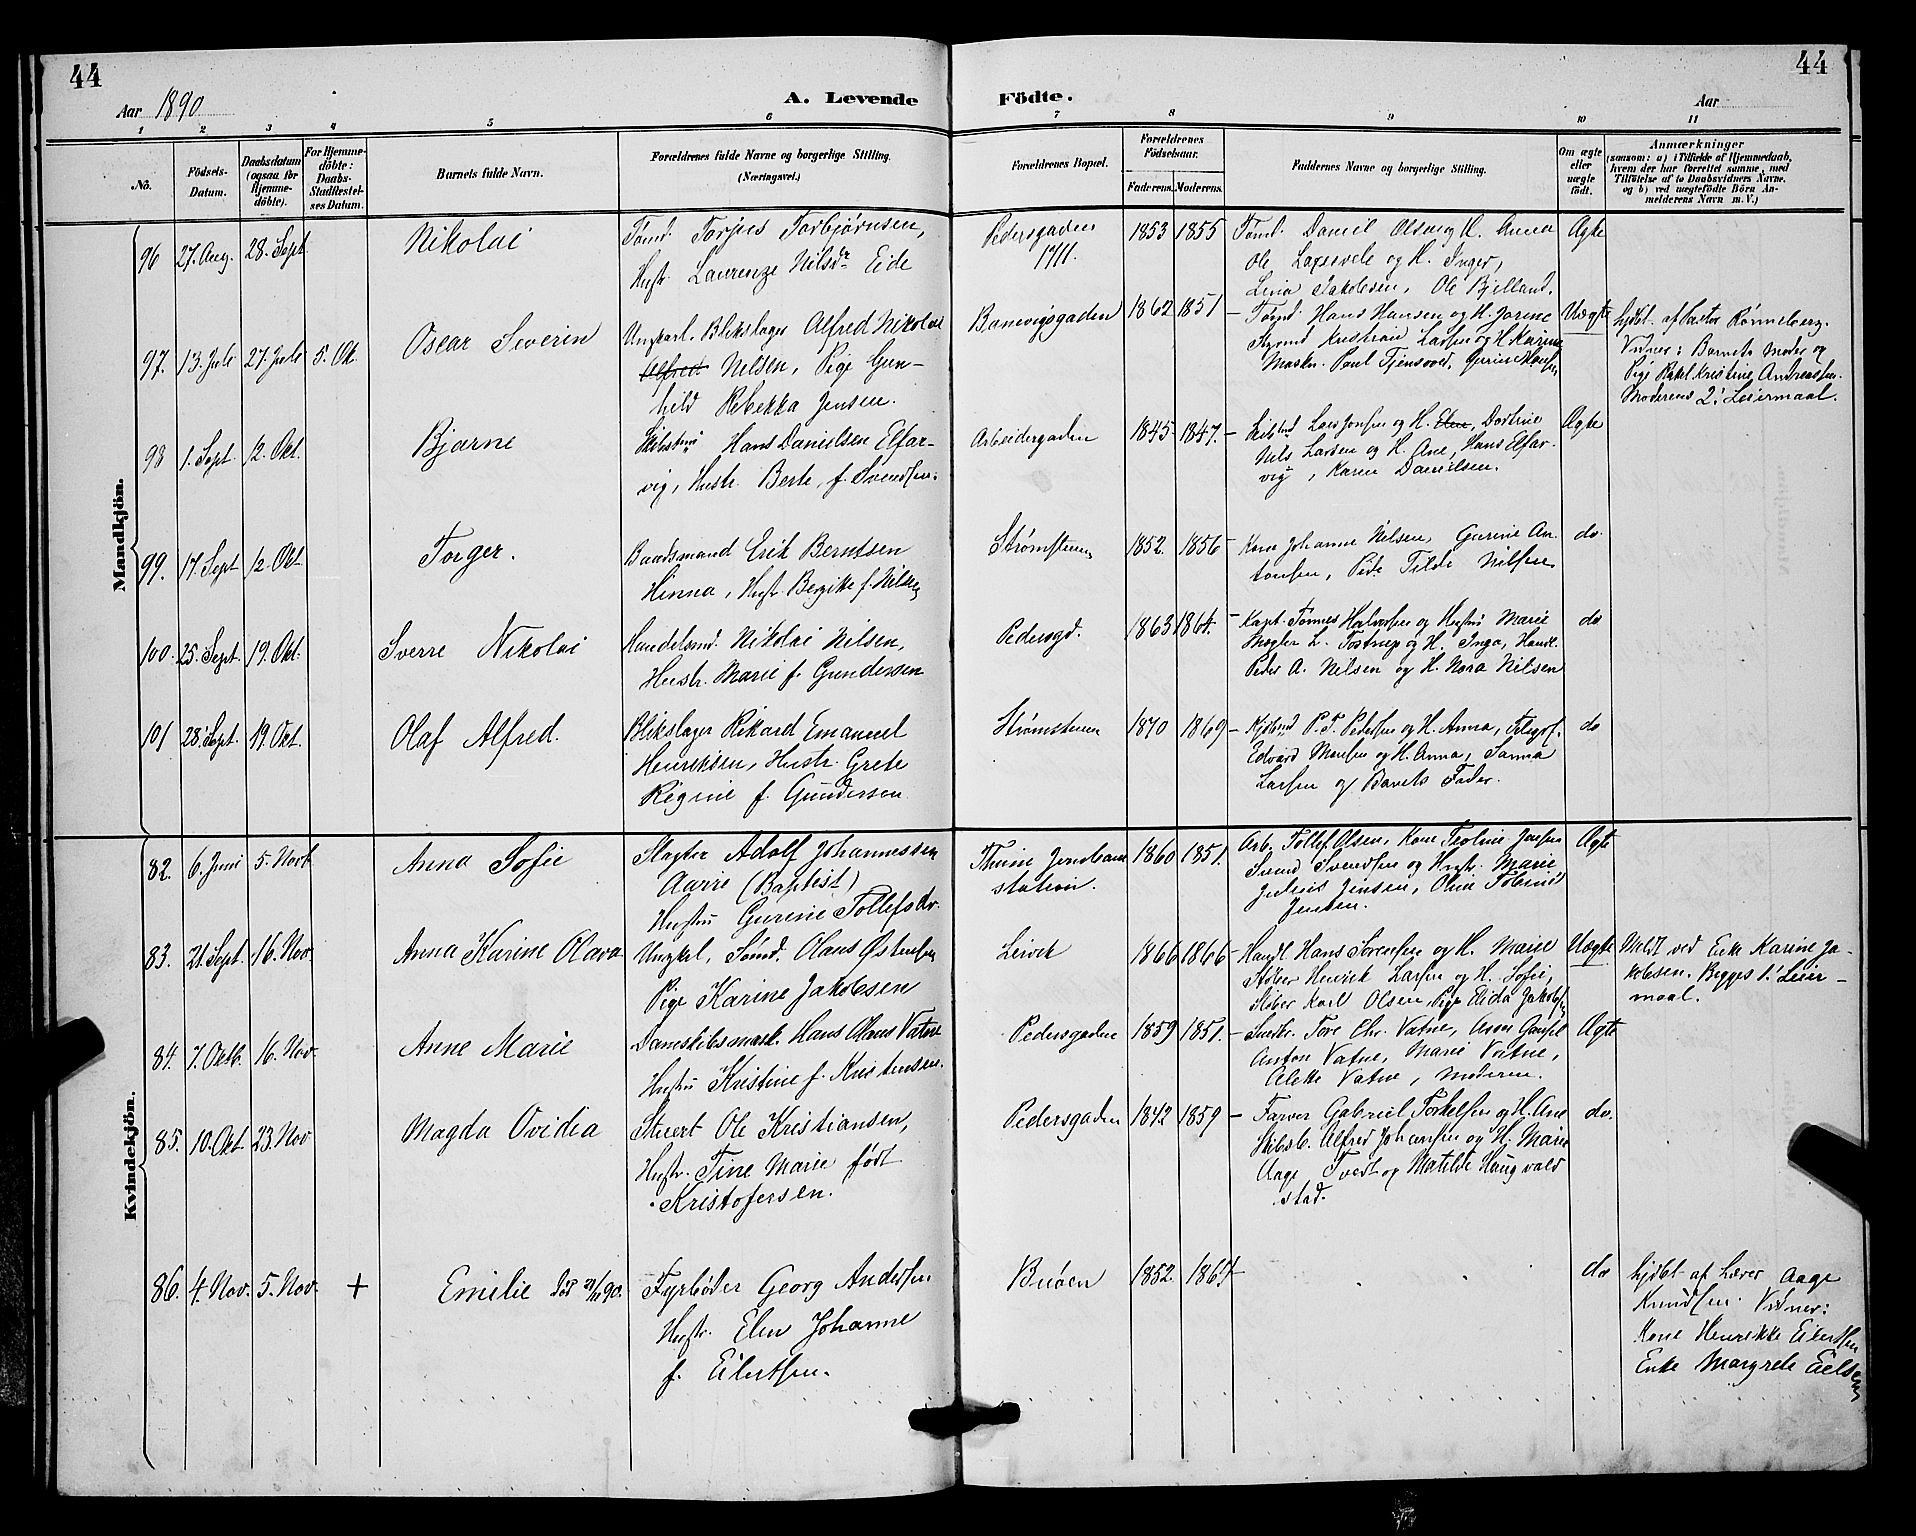 44
44
Aar 1890
A. Levende
Födte.
Aar
1 2 3 4 5 6 7 8 9 10 11
No.
Födsels-
Datum.
Daabsdatum
(ogsaa for
Hjemme-
döbte).
For Hjemme-
döbte:
Daabs-
Stadfestel-
ses Datum.
Barnets fulde Navn.
Forældrenes fulde Navne og borgerlige Stilling.
(Næringsvei.)
Forældrenes Bopæl.
Forældrenes
Födselsaar.
Faderens. Moderens.
Faddernes Navne og borgerlige Stilling.
Om ægte
eller
uægte
födt.
Anmærkninger
(saasom: a) i Tilfælde af Hjemmedaab,
hvem der har forrettet samme, med
Tilföielse af to Daabsvidners Navne,
og b) ved uægtefödte Börn An-
melderens Navn m. V.)
Mandkjön.
96 27. Aug. 28. Sept Nikolai
Tømd. Torjus Torbjørnsen,
Hustr. Laurenze Nilsdr Eide
Pedersgaden
1711.
1853 1855
Tømd. Daniel Olsen og H. Anna
Ole Laxesvele og H. Inger,
Lina Jakobsen, Ole Bjelland.
Ægte
97. 13. Juli 27 Juli 5. Ok. Oscar Severin
Ungkarl. Blikslager Alfred Nikolai
Alfred Nilsen, Pige Gun-
hild Rebekka Jensen.
Banevigsgaden 1862 1851
Tømd. Hans Hansen og H. Jorine
Kristian Larsen og H. Karine
Maskn. Paul Tjensvold, Gurine Hansen
Uægte
hjdbt. af Pastor Rønneberg.
Vidner: Barnets Moder og
Pige Rakel Kristine Andreassen.
Moderens 2' Leiermaal.
98 1. Sept. 12. Okt. Bjarne
Hans Danielsen Elfar-
vig, Hustr. Berte, f. Svendsen.
Arbeidergaden 1845 1847.
Lars Jonsen og H. Elen, Dortine
Nils Larsen og H. Ane, Hans Elfar-
vig, Karen Danielsen.
Ægte
99. 17. Sept 12. Okt Torger.
Baadsmand Erik Berntsen
Hinna, Hustr. Bergitte f. Nilsen
Strømstenen 1852. 1856
Kone Johanne Nilsen, Gurine An-
tonsen, Pige Tilda Nilsen
do.
100. 25. Sept. 19. Okt. Sverre Nikolai
Handelsmd. Nikolai Nilsen,
Hustr. Marie f. Gundersen
Pedersgd. 1863 1864.
Kapt. Tønnes Halvorsen og Hustru Marie
Mægler L. Tostrup og H. Inga, Handl.
Peder A. Nilsen og H. Nora Nilsen
do
101 28. Sept. 19. Okt. Olaf Alfred.
Blikslager Rikard Emanuel
Henriksen, Hustr. Grete
Regine f. Gundersen
Strømstenen 1870 1869
Kjøbmd P. T. Pedersen og H. Anna, Telegrf.
Edvard Monsen og H. Anna, Sanna
Larsen og Barnets Fader.
do
Kvindekjön.
82. 6. Juni 5. Novb Anna Sofie
Slagter Adolf Johannessen
Aarre (Baptist)
Hustru Gurine Tollefsdr.
Thime Jernbane
station.
1860 1851.
Arb. Tollef Olsen, Kone Teoline Jensen
Svend Svendsen og Hustr. Marie
Julius Jensen, Oline Tobine
Jensen.
Ægte
83. 21. Sept. 16. Nov. Anna Karine Olava
Ungkl., Sømd. Olaus Østensen
Pige Karine Jakobsen
Leirvik 1866 1866
Handl Hans Sørensen og H. Marie
Støber Henrik Larsen og H. Sofie,
Støber Karl Olsen, Pige Elida Jakobsen
Uægte
Meldt ved Enke Karine Ja-
kobsen. Begges 1. Leier-
maal.
84. 7. Oktb. 16. Nov. Anne Marie
Dampskibsmask. Hans Olaus Vatne
Hustru Kristine f. Kristensen.
Pedersgaden 1859 1851.
Snedkr. Tore Chr. Vatne, Anna Gausel
Anton Vatne, Marie Vatne,
Alette Vatne, Moderen.
Ægte
85. 10. Okt 23. Nov Magda Ovidia
Stuert Ole Kristiansen,
Hustr. Tine Marie født
Kristofersen.
Pedersgaden 1842 1859
Farver Gabriel Torkelsen og H. Ane
Skibsb. Alfred Johansen og H. Marie
Aage Tvedt og Matilde Haugvald
stad.
do.
86. 4. Nov. 5. Nov. + Emilie død 90.
Fyrbøder Georg Andersen
Hustr. Elen Johanne
f. Eilertsen.
Buøen 1852. 1867
do
hjdbt af Lærer Aage
Knudsen. Vidner:
Kone Henrikke Eilertsen
Enke Margrete Eielsen